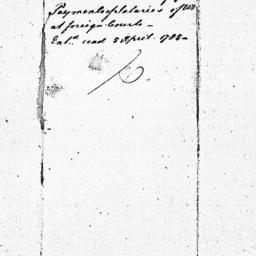 Payment of Salaries of
at foreign Courts —
Ent.d read 5 April 1785 —